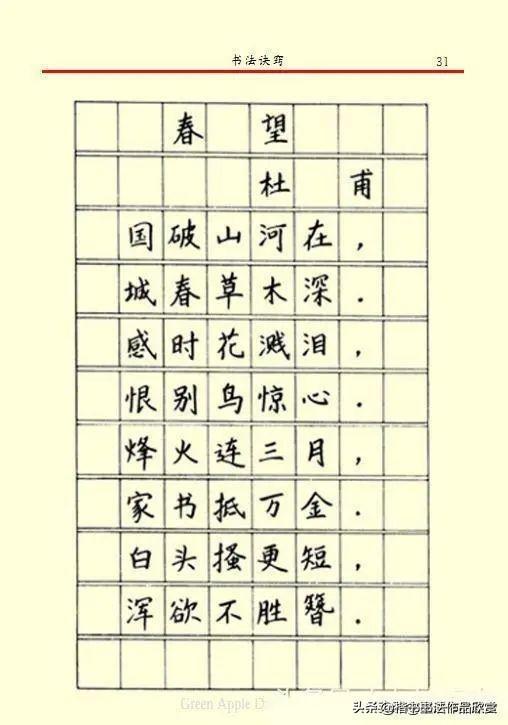 书法诀窍 31
春望
杜甫
国破山河在，
城春草木深．
感时花溅泪，
恨别鸟惊心．
烽火连三月，
家书抵万金．
白头搔更短，
浑欲不胜簪．
Green Apple D
头条@楷书书法作品欣赏